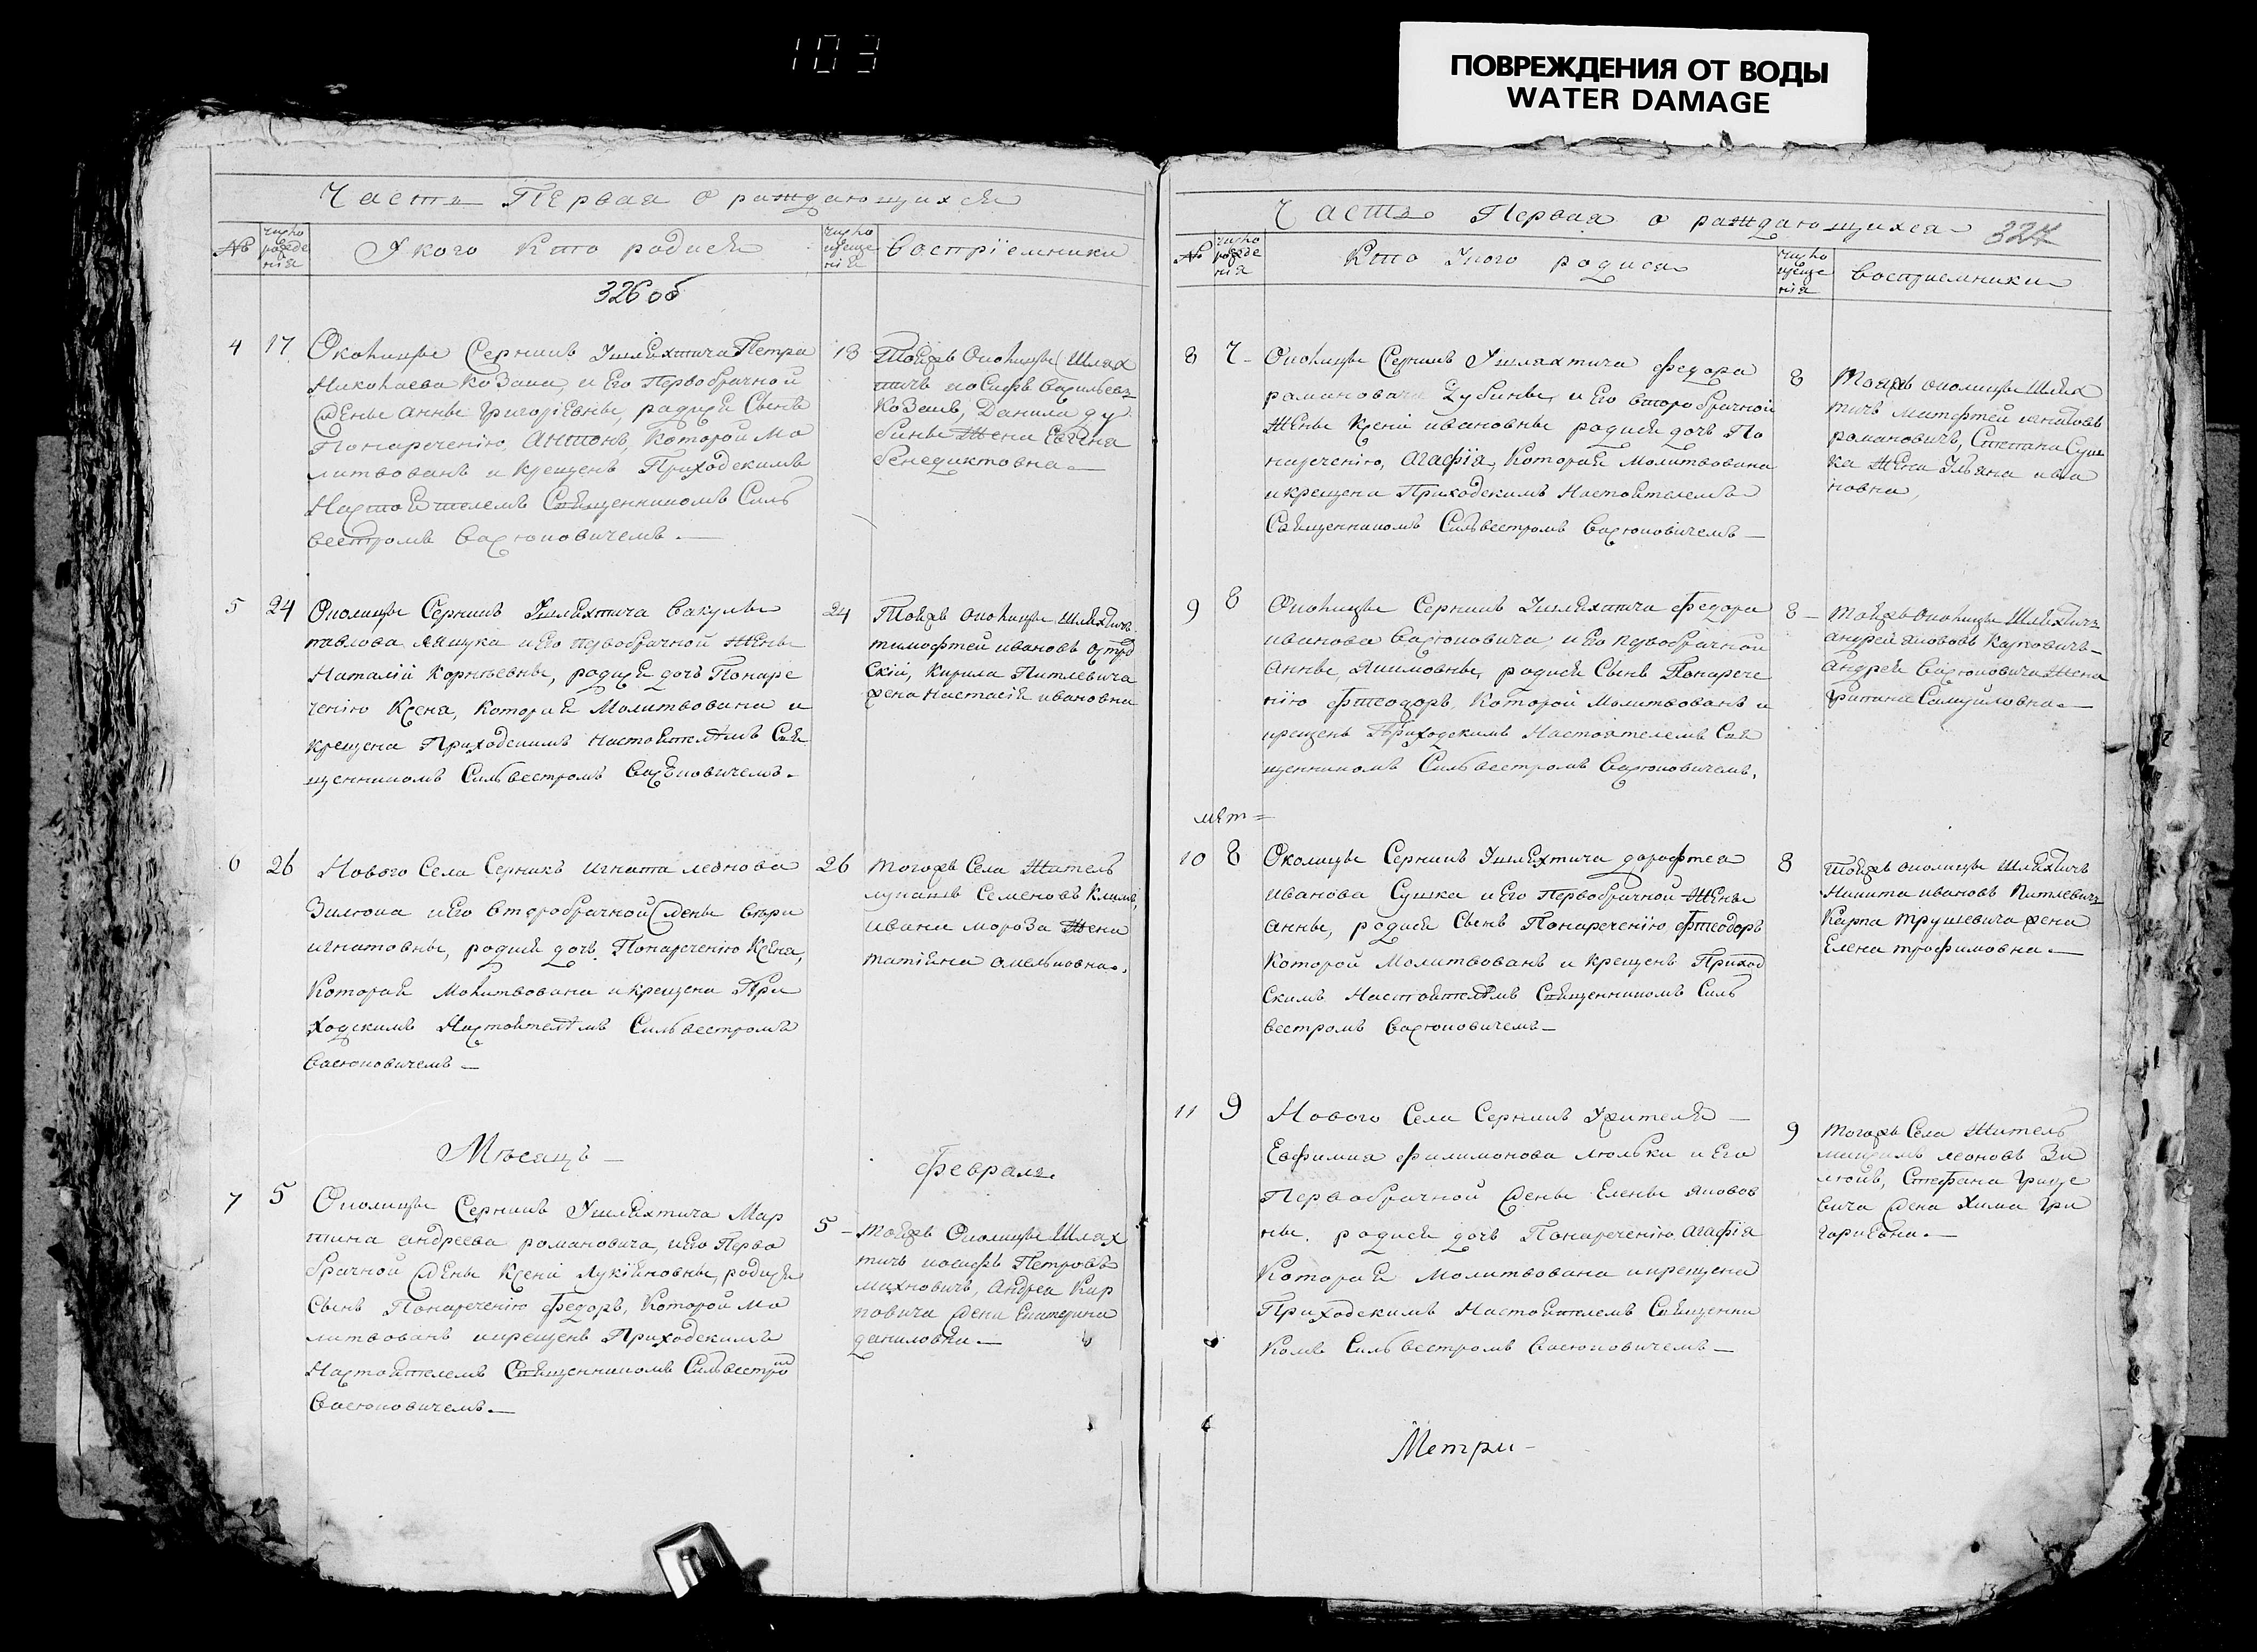 103
ПОВРЕЖДЕНИЯ ОТ ВОДЫ
WATER DAMAGE
Часть Первая о раждающихся
№
число рожде нія
У кого Кто родися
число креще нія
Воспріемники
326 об
4 17
Околицы Серникъ Ушляхтича Петра
Николаева Козана, и Его Первобрачной
Жены Анны Григоріевны, родися Сынъ
Понареченію, Антонъ, которой мо
литвованъ и крещенъ Приходскимъ
Настоятелемъ Священникомъ Силь
вестромъ Васюковичемъ.
18
Тойжъ Околицы Шлях
тичъ иосифъ Васильевъ
Козанъ, Данила Ду
бины Жена Евгена
Бенедиктовна
5 24
Околицы Серникъ Ушляхтича Вакулы
павлова Ляшука и Его первобрачной Жены
Наталіи Корнѣевны, родися дочъ Понаре
ченію Ксеня, Которая Молитвована и
крещена Приходскимъ настоятелѣмъ Свя
щенникомъ Сильвестромъ Васюковичемъ.
24
Тойжъ околицы Шляхтичъ
тимофтей ивановъ Остро
Скій, Кирила Питлевича
жена Настасія ивановна
6 26
Нового Села Серникъ игната леонова
Зилюка и Его Второбрачной Жены Вѣри
игнатовны, родися дочъ Понареченію Ксеня,
Которая Молитвована и крещена При
ходскимъ Настоятелѣмъ Сильвестромъ
Васюковичемъ
26
тогожъ Села Житель
лукашъ Семеновъ Климъ,
ивана мороза Жена
татіяна омельковна.
Мѣсяцъ
Февраль
7 5
Околицы Серникъ Ушляхтича Мар
тина андреева романовича, и Его Перво
брачной Жены Ксеніи Лукіяновны, родися
Сынъ Понареченію Федоръ, Которой мо
литвованъ и крещенъ Приходскимъ
Настоятелемъ Священникомъ Сильвестро
Васюковичемъ
5
Тойжъ Околицы Шлях
тичъ иосифъ Петровъ
михновичъ, Андрея Кар
повича Жена Екатерина
даниловна
Часть Первая о раждающихся
327
№
число рожде нія
Кто Укого родися
число креще нія
Воспріемники
8 7
Околицы Серникъ Ушляхтича Федора
романовича Дубины, и Его второбрачной
Жены Ксеніи ивановны родися дочъ По
нареченію, Агафія, Которая Молитвована
и крещена Приходскимъ Настоятелемъ
Священникомъ Сильвестромъ Васюковичемъ
8
Тойжъ околицы Шлях
тичъ матфтей игнатовъ
романовичъ, Степана Суш
ка Жена Ульяна ива
новна
9 8
Околицы Серникъ Ушляхтича Федора
иванова Васюковича и Его первобрачной
Анны, Якимовны, родися Сынъ Понарече
нію Фтеодоръ, Которой Молитвованъ и
крещенъ Приходскимъ Настоятелемъ Свя
щенникомъ Сильвестромъ Васюковичемъ.
8
Тойжъ околицы Шляхтичъ
андрей якововъ Карповичъ
Андрея Васюковича Жена
Гапана Самуйловна
мѣт
10 8
Околицы Серникъ Ушляхтича дорофтея
Иванова Сушка и Его Первобрачной Жены
Анны, родися Сынъ Понареченію Фтеодоръ
Которой Молитвованъ и Крещенъ Приход
Скимъ Настоятелѣмъ Священникомъ Силь
вестромъ Васюковичемъ
8
Тойжъ околицы Шляхтичъ
Никита ивановъ Питлевичъ
Карпа Трушевича жена
Елена трофимовна
11 9
Нового Села Серникъ Ужителя
Евфимия Филимонова люлька и Его
Первобрачной Жены Елены яковов
ны, родися дочъ Понареченію Агафія
Которая Молитвована и крещена
Приходскимъ Настоятелемъ Священни
Комъ Сильвестромъ Васюковичемъ
9
тогожъ Села Житель
максимъ леоновъ Зи
люкъ, Стефана Грице
вича Жена Хима Гри
гориевна
Метри